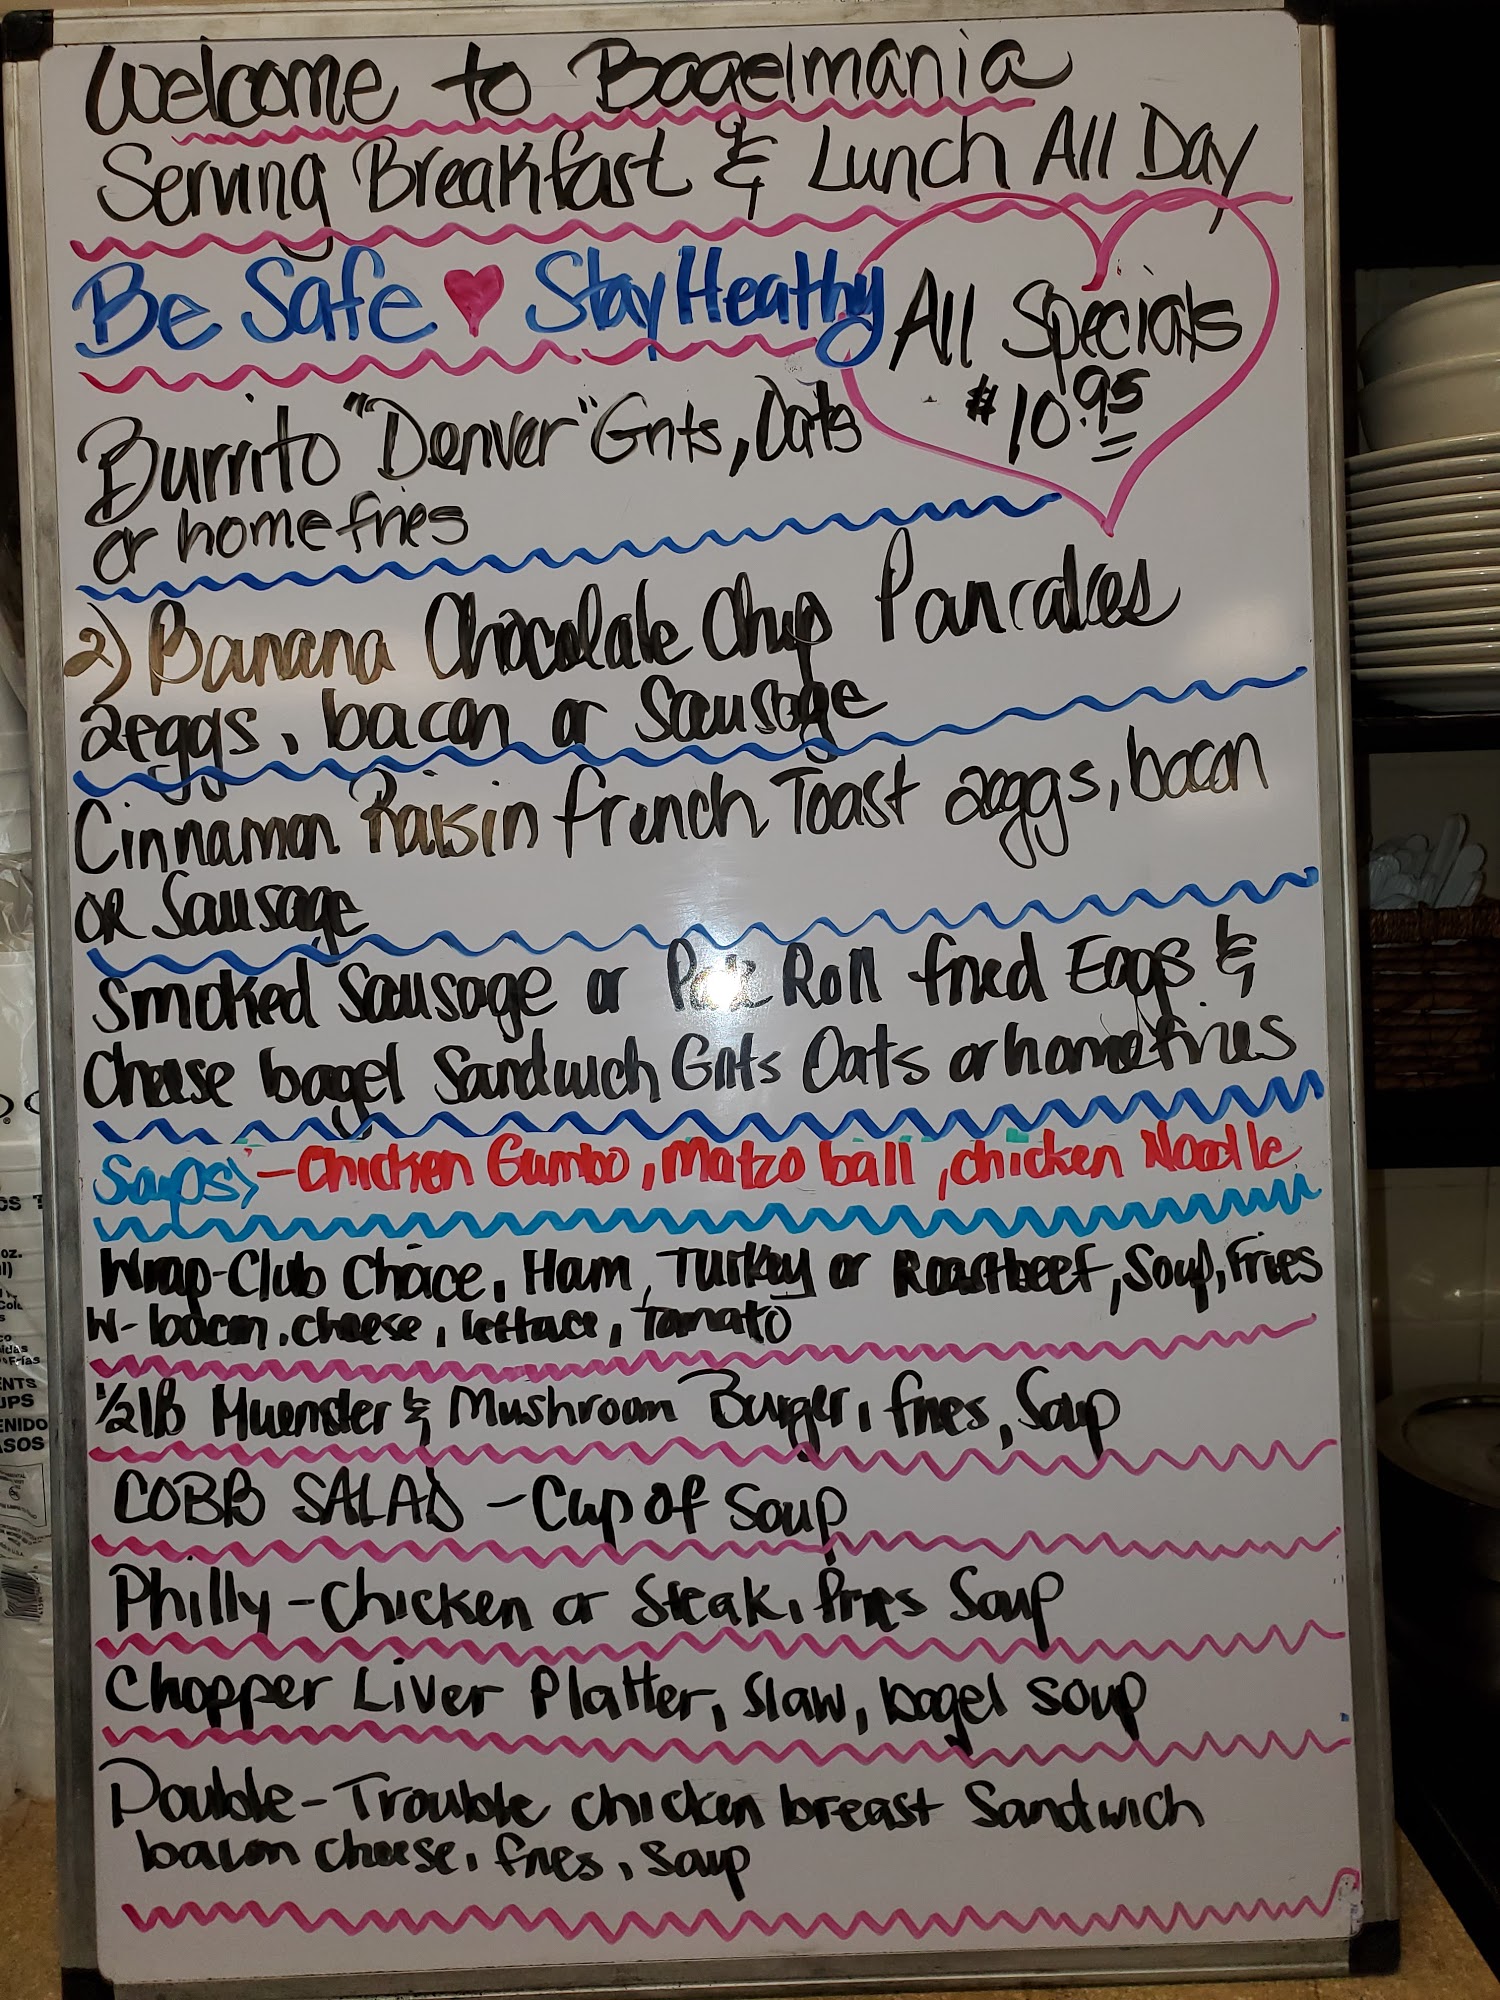 Welcome to Bagelmania
Serving Breakfast & Lunch All Day
Be Safe ♥ Stay Heathy
All Specials
$10.95
Burrito "Denver" Grits, Oats
or homefries
2) Banana Chocolate Chip Pancakes
2eggs, bacon or Sausage
Cinnamon Raisin french Toast 2eggs, bacon
or Sausage
Smoked Sausage or Pork Roll fried Eggs &
Cheese bagel Sandwich Grits Oats or homefries
Soups - Chicken Gumbo, Matzo ball, chicken Noodle
Wrap-Club Choice, Ham, Turkey or Roastbeef, Soup, Fries
W- bacon, cheese, lettace, Tomato
1/2 lB Muenster & Mushroom Burger, fries, Soup
COBB SALAD - Cup of Soup
Philly - Chicken or Steak, fries Soup
Chopper Liver Platter, Slaw, bagel Soup
Double-Trouble chicken breast Sandwich
bacon cheese, fries, Soup
oz.
ENIDO